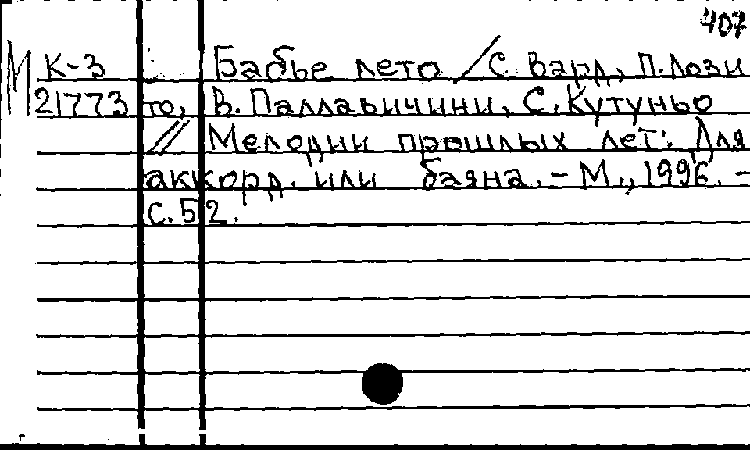 407
М К-3 Бабье лето / С. Вард, П. Лози
21773 то, В. Паллавичини, С. Кутуньо
// Мелодии прошлых лет: Для
аккорд. или баяна. - М., 1996. -
С. 52.